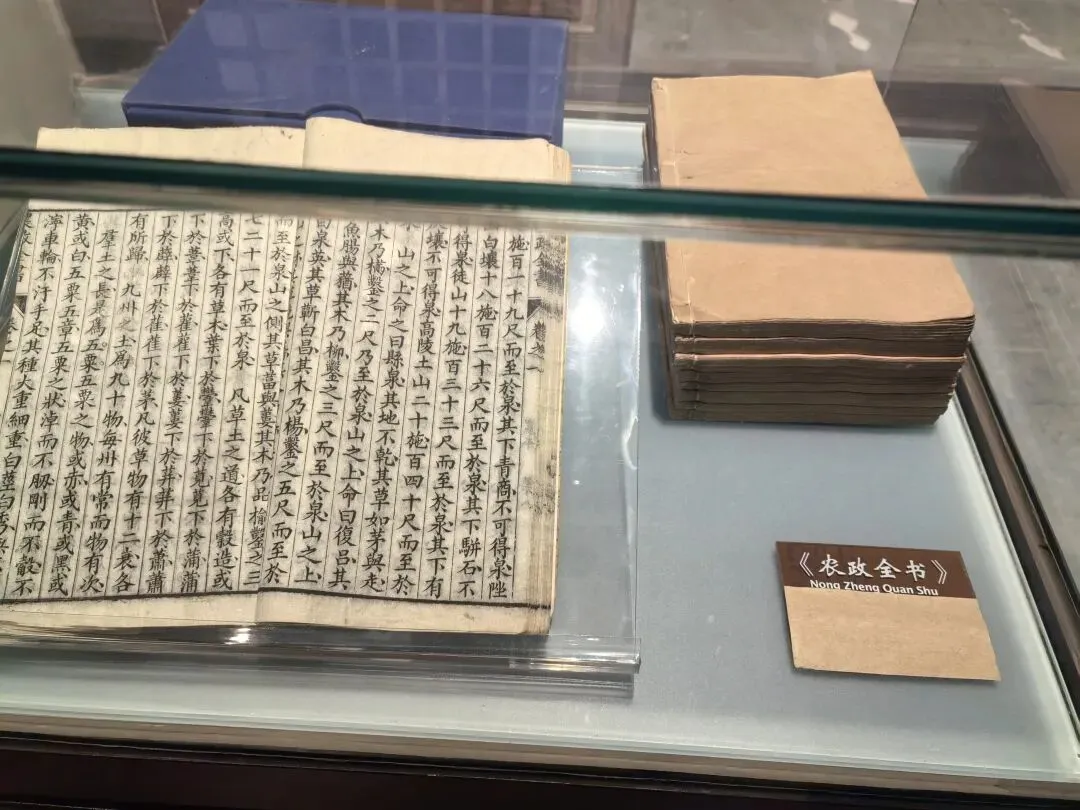 政全書 卷之一
施百一十九尺而至於泉其下青商不可得泉陛
白壤十八施百三十六尺而至於泉其下駢石不
得泉徙山十九施百三十三尺而至於泉其下有
壤不可得泉高陵土山二十施百四十尺而至於
山之上命之曰縣泉其地不乾其草如茅與走
木乃樠鑿之二尺乃至於泉山之上命曰復呂其
魚腸與蕕其木乃柳鑿之三尺而至於泉山之上
泉英其草蘄白昌其木乃楊鑿之五尺而至於
而至於泉山之側其草葍與蔞其木乃品榆鑿之三
七二十一尺而至於泉 凡草土之道各有穀造或
高或下各有草木葉下於攣攣下於莧莧下於蒲蒲
下於葦葦下於雚雚下於蔞蔞下於荓荓下於蕭蕭
下於薜薜下於萑萑下於茅凡彼草物有十二衰各
有所歸 九州之土爲九十物每州有常而物有次
羣土之長是爲五粟五粟之物或赤或青或黑或
黃或白五粟五章五粟之狀淖而不肕剛而不觳不
濘車輪不汙手足其種大重細重白莖白秀
《农政全书》
Nong Zheng Quan Shu